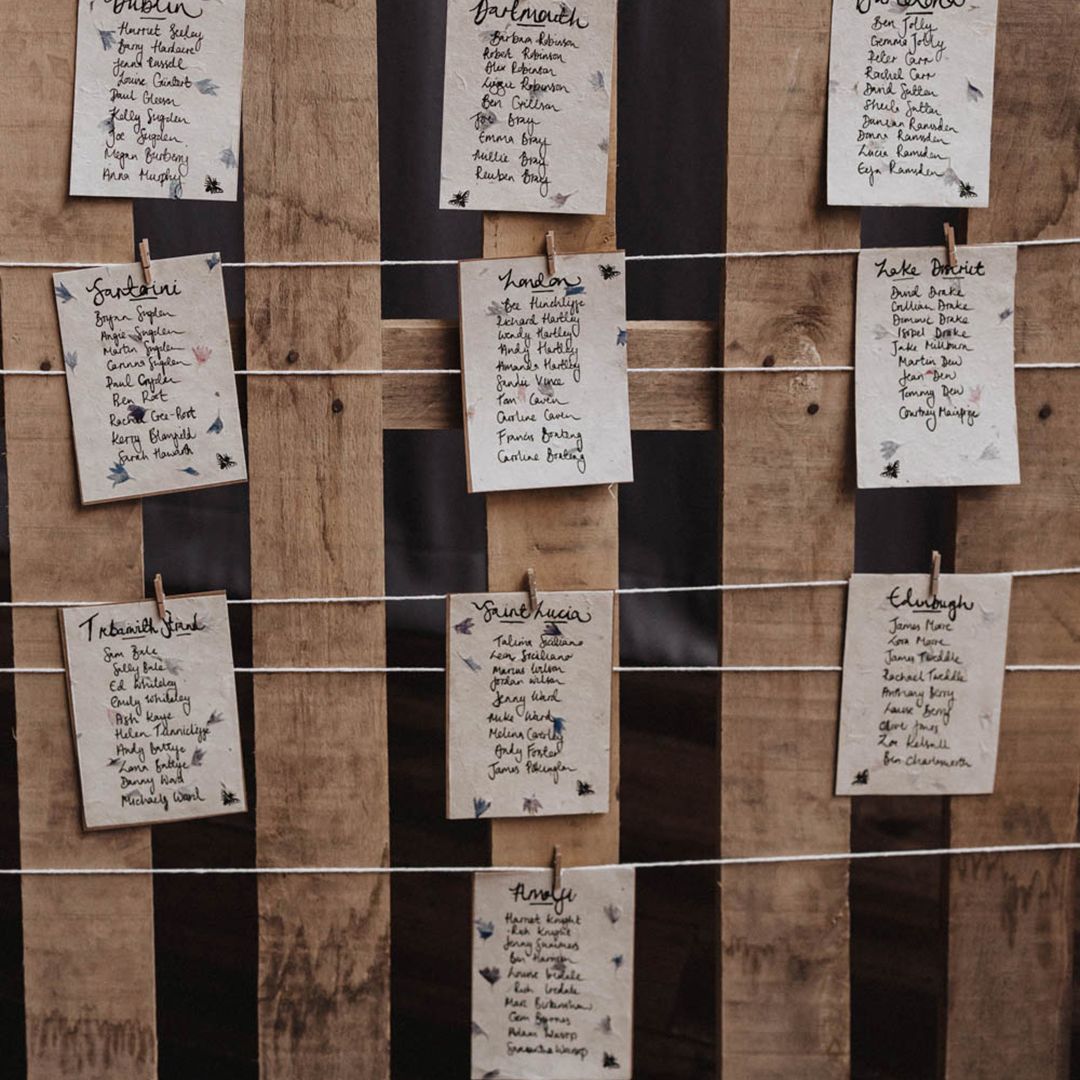 Dublin
Harriet Seeley
Barry Hardacre
Jenna Russell
Louise
Paul Gleeson
Kelly Sugden
Joe Sugden
Megan Burberry
Anna Murphy
Dartmouth
Barbara Robinson
Robert Robinson
Alex Robinson
Lizzie Robinson
Ben Grillson
Joe Bray
Emma Bray
Millie Bray
Reuben Bray
Barcelona
Ben Jolly
Gemma Jolly
Peter Carr
Rachel Carr
David Sutton
Sheila Sutton
Damian Ramsden
Donna Ramsden
Lucia Ramsden
Ramsden
Santorini
Bryan Sugden
Angie Sugden
Martin Sugden
Corinna Sugden
Paul
Ben Root
Rachel Gee-Root
Kerry Blamfeld
Sarah Haworth
London
Bee Hinchliffe
Richard Hartley
Wendy Hartley
Andy Hartley
Amanda Hartley
Sandie Vince
Tom Caven
Caroline Caven
Francis Boateng
Caroline Boateng
Lake District
David Drake
Gillian Drake
Dominic Drake
Isobel Drake
Jake Millburn
Martin Dew
Jean Dew
Tommy Dew
Courtney
Trebarwith Strand
Sam Bale
Sally Bale
Ed Whiteley
Emily Whiteley
Ash Kaye
Helen Tunnicliffe
Andy Battye
Lana Battye
Danny Ward
Michaela Ward
Saint Lucia
Talima Siciliano
Leon Siciliano
Marcus Wilson
Jordan Wilson
Jenny Ward
Mike Ward
Melina
Andy Foster
James
Edinburgh
James Moore
Zora Moore
James Tweddle
Rachael Tweddle
Anthony Berry
Louise Berry
Clive Jones
Zoe Kelsall
Ben Charlesworth
Amalfi
Harriet Knight
Rich Knight
Jenny Summers
Ben Harrison
Louise Iredale
Rich Iredale
Marc Birkenshaw
Gem Barnes
Adam Wasop
Samantha Wasop